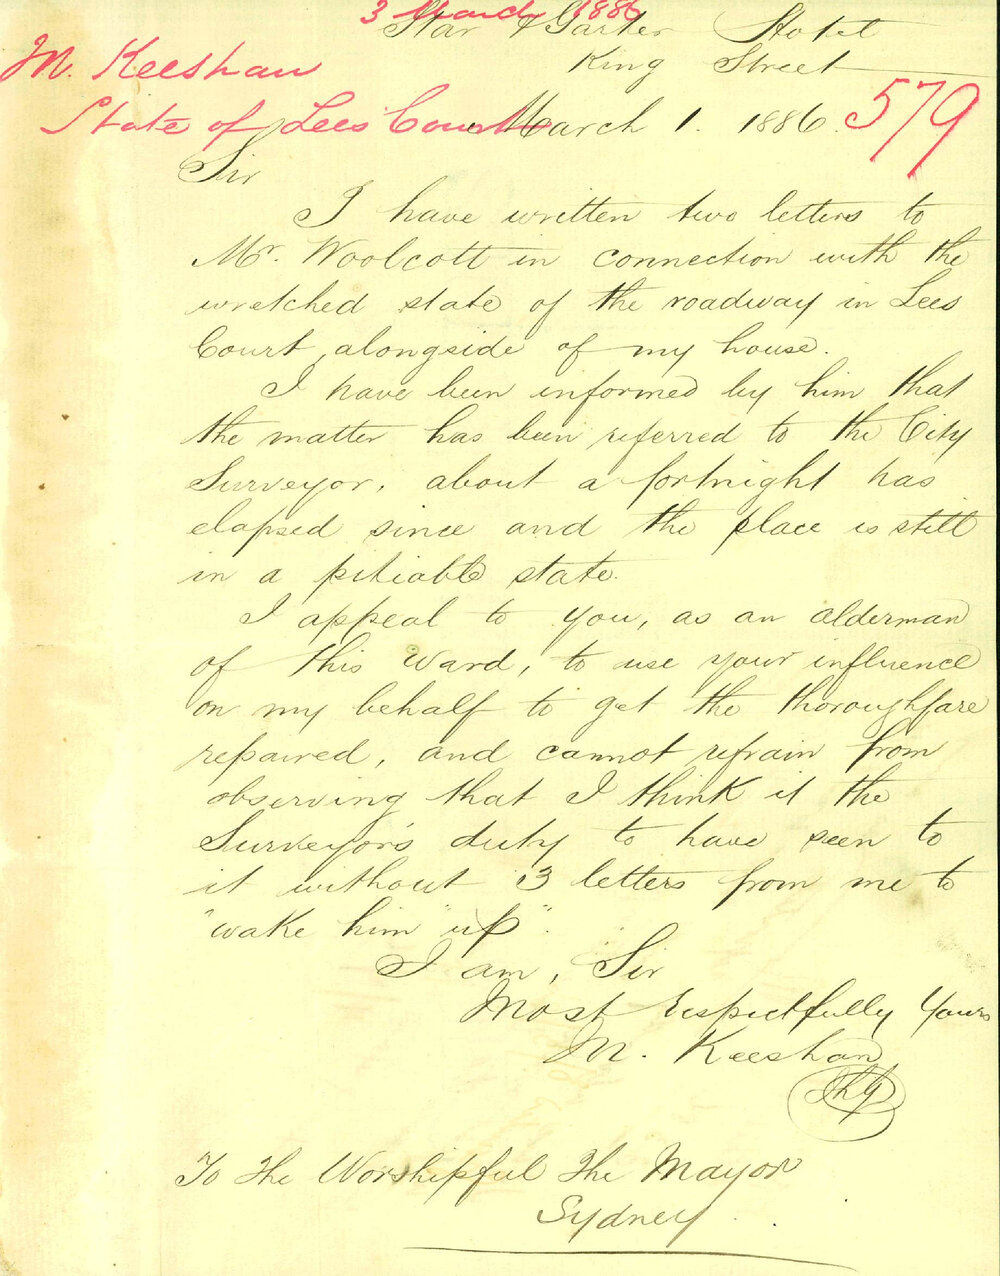 3 March 1886
Star & Garter Hotel
M. Keeshan
King Street
579
State of Lees Court
March 1. 1886.
Sir
I have written two letters to
Mr. Woolcott in connection with the
wretched state of the roadway in Lees
Court, alongside of my house.
I have been informed by him that
the matter has been referred to the City
Surveyor, about a fortnight has
elapsed since and the place is still
in a pitiable state.
I appeal to you, as an alderman
of this ward, to use your influence
on my behalf to get the thoroughfare
repaired, and cannot refrain from
observing that I think it the
Surveyor's duty to have seen to
it without 3 letters from me to
"wake him "up".
I am, Sir
Most respectfully Yours
M. Keeshan
To The Worshipful The Mayor
Sydney.